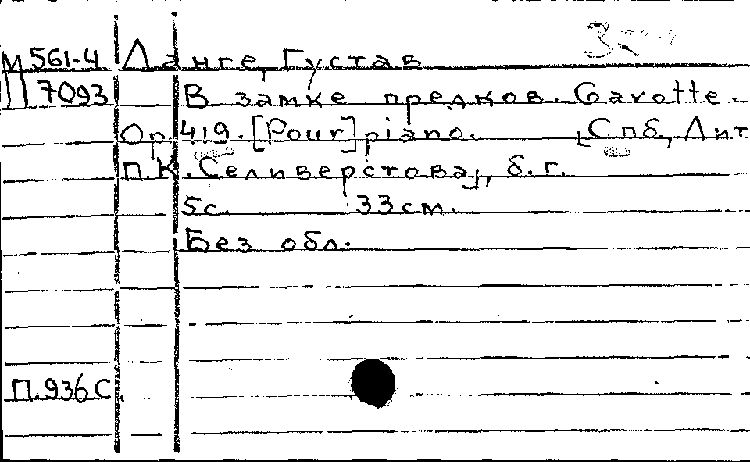 М 561-4 Ланге, Густав
II 7093 В замке предков. Gavotte.
Op. 419. [Pour] piano. [Спб., Лит
П.К. Селиверстова], б. г.
5 с. 33 см.
Без обл.
П.936 С